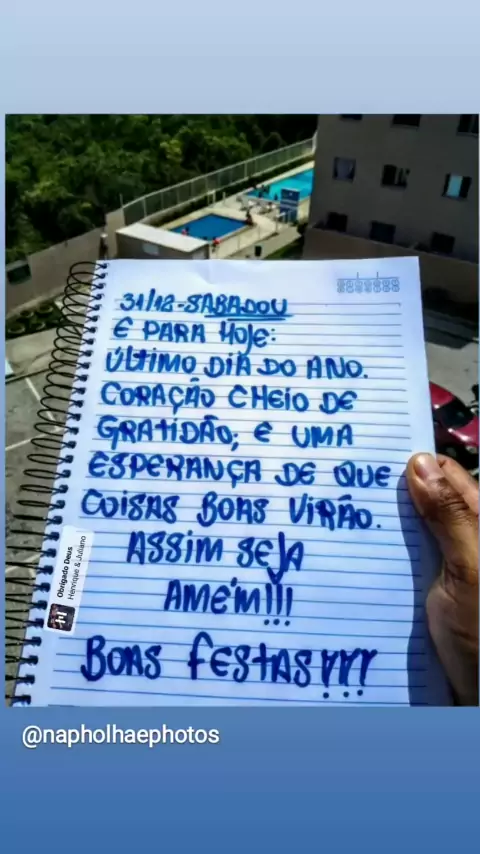 31/12-SABADOU
E PARA HOJE:
ÚLTIMO DIA DO ANO.
CORAÇÃO CHEIO DE
GRATIDÃO; E UMA
ESPERANÇA DE QUE
COISAS BOAS VIRÃO.
ASSIM SEJA
AMÉM!!!
BOAS FESTAS!!!
Obrigado Deus
Henrique & Juliano
@napholhaephotos